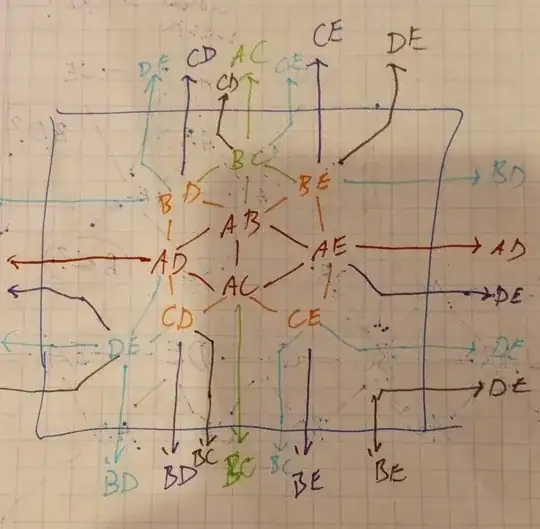 CE
DE
CD AC
DE CD CE
BC
BD BE BD
AB
AD AE AD
AC DE
CD CE
DE DE
DE
BD BD BC BC BC BE BE